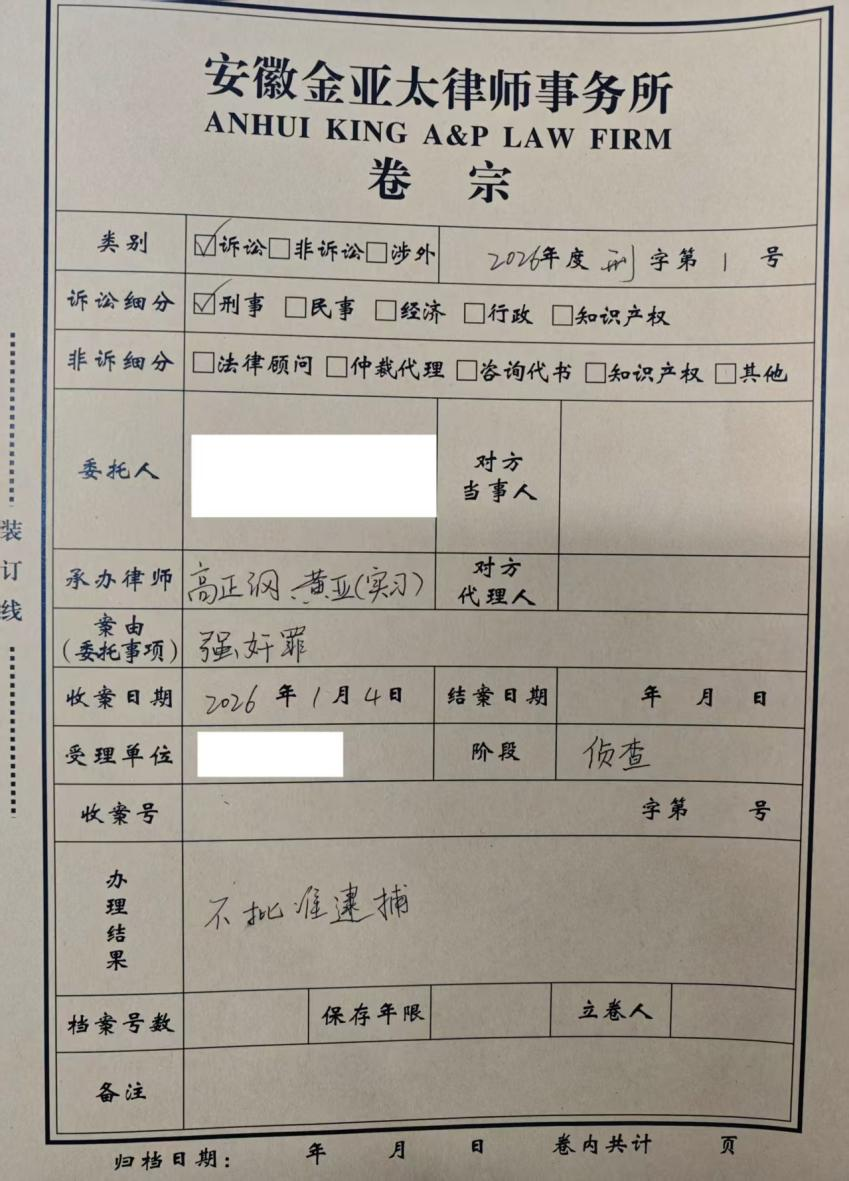 安徽金亚太律师事务所
ANHUI KING A&P LAW FIRM
卷 宗
类别 ☑诉讼□非诉讼□涉外 2026年度 刑 字第 1 号
诉讼细分 ☑刑事 □民事 □经济 □行政 □知识产权
非诉细分 □法律顾问 □仲裁代理 □咨询代书 □知识产权 □其他
委托人 对方
当事人
承办律师 高正纲、黄亚(实习) 对方
代理人
案由
(委托事项) 强奸罪
收案日期 2026 年 1 月 4 日 结案日期 年 月 日
受理单位 阶段 侦查
收案号 字第 号
办
理
结
果
不批准逮捕
档案号数 保存年限 立卷人
备注
归档日期: 年 月 日 卷内共计 页
装
订
线